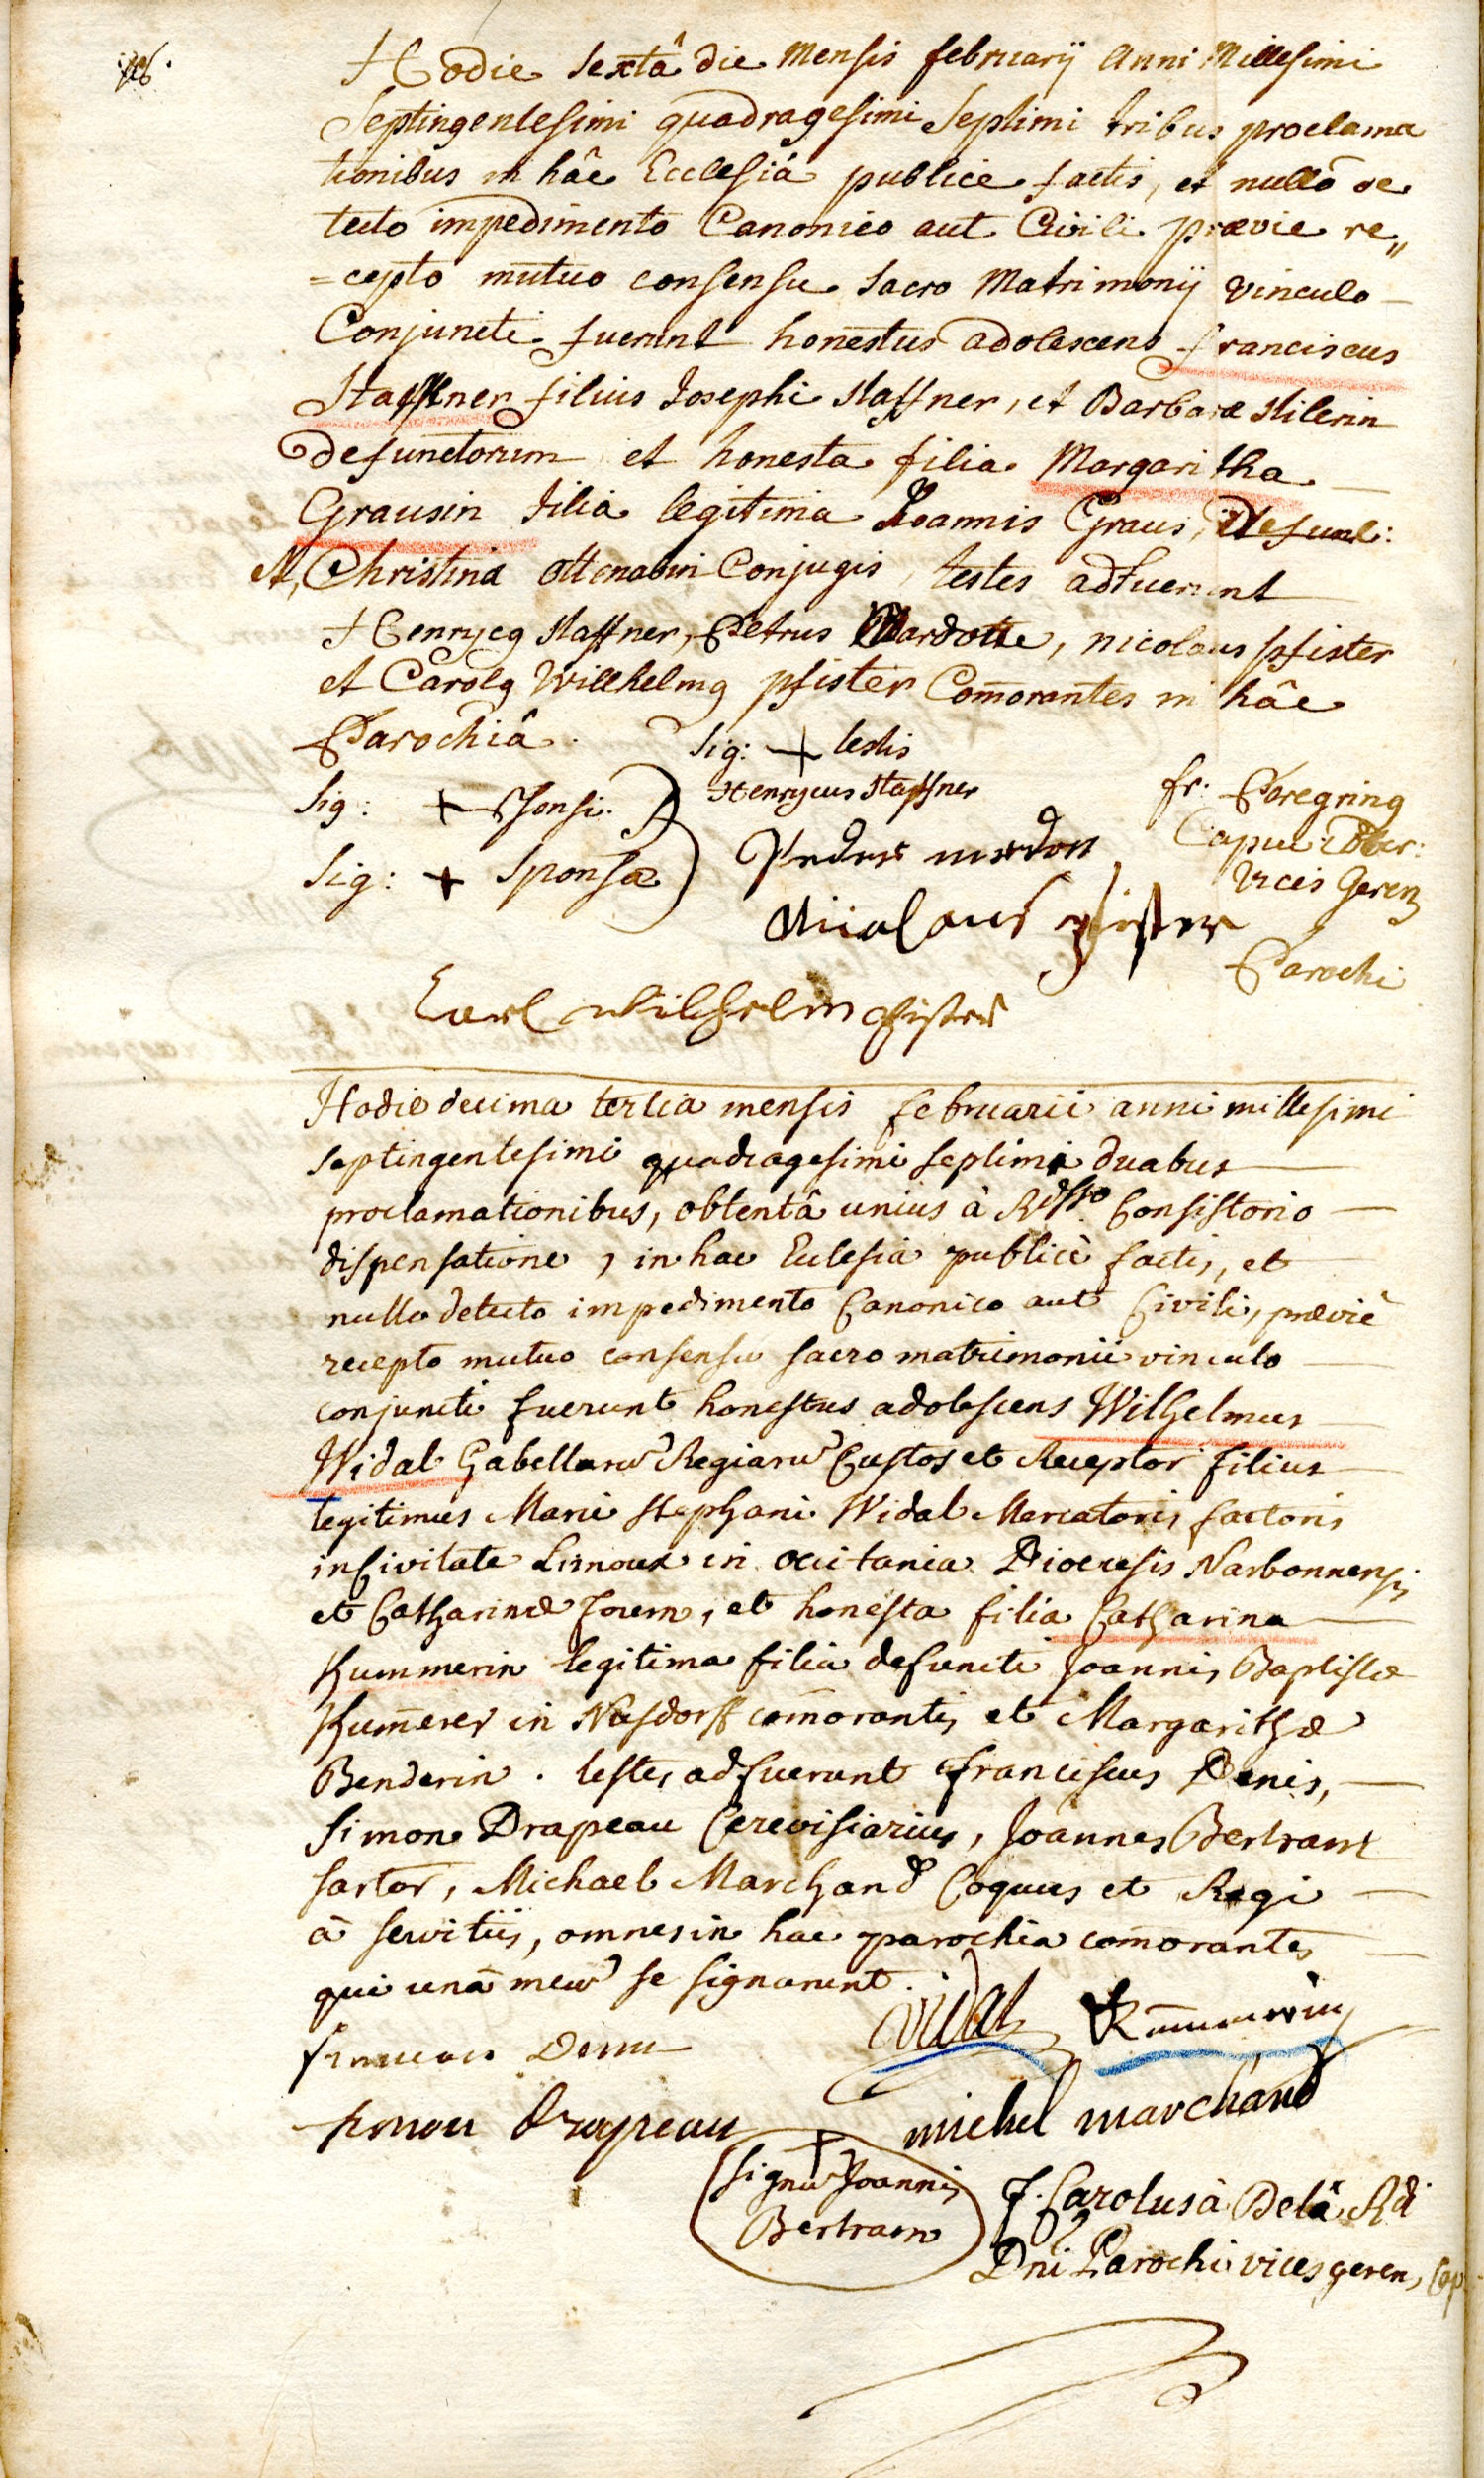 Hodie sextâ die Mensis februarij Anni Millesimi
Septingentesimi quadragesimi Septimi tribus proclama
tionibus in hâc Ecclesiâ publice factis, et nullô de
tecto impedimento Canonico aut Civili prævie re„
=cepto mutuo consensu Sacro Matrimonij vinculo –
Conjuncti fuerunt honestus adolescens franciscus
Staffner filius Josephi Staffner, et Barbaræ Stilerin
defunctorum et honesta filia Margaritha –
Grausin filia legitima Joannis Graus, Defuncti:
et, Christina Ottenadin Conjugis, testes adfuerunt
Henryc9 Staffner, Petrus Mardotte, nicolaus Pfister
et Carol9 Willhelm9 pfister Com̄orantes in hâc
Parochiâ. Sig: + testis
Henrycus Staffner
Sig: + Sponsi.
fr. Peregrin9
Sig: + Sponsæ
Peder mardott
Capuc:
Vices Gerens
Nicolaus pfister
Parochi
Carl Wilhelm Pfister
Hodie decima tertia mensis februarii anni millesimi
septingentesimi quadragesimi septimi duabus —
proclamationibus, obtentâ unius à Rdsso. Consistorio —
dispensatione, in hac Eclesia publicè factis, et
nullo detecto impedimento Canonico aut Civili, præviè
recepto mutuo consensu sacro matrimonii vinculo —
conjuncti fuerunt honestus adolescens Wilhelmus —
Widal Gabellarū Regiarū Custos et Receptor filius —
legitimus Marci Stephani Widal Mercatoris factoris
in Civitate Limoux in occitania Dioecesis Narbonnensis
et Catharinæ, et honesta filia Catharina —
Kummerin legitima filia defuncti Joannis Baptistæ
Kum̄erer in Nusdorff com̄orantis et Margarithæ
Benderin. testes adfuerunt franciscus Denis, —
Simon Drapeau Cerevisiarius, Joannes Bertram
sartor, Michael Marchand Coquus et Regi —
â servitiis, omnes in hac parochia com̄orantes —
qui unâ mecū se signarunt.
Vidal Kummerin
francois Denis
simon Drapeau
michel marchand
Signū Joannis
Bertram
F. Carolus à Rdi
Dni Parochi vices gerens, Cap